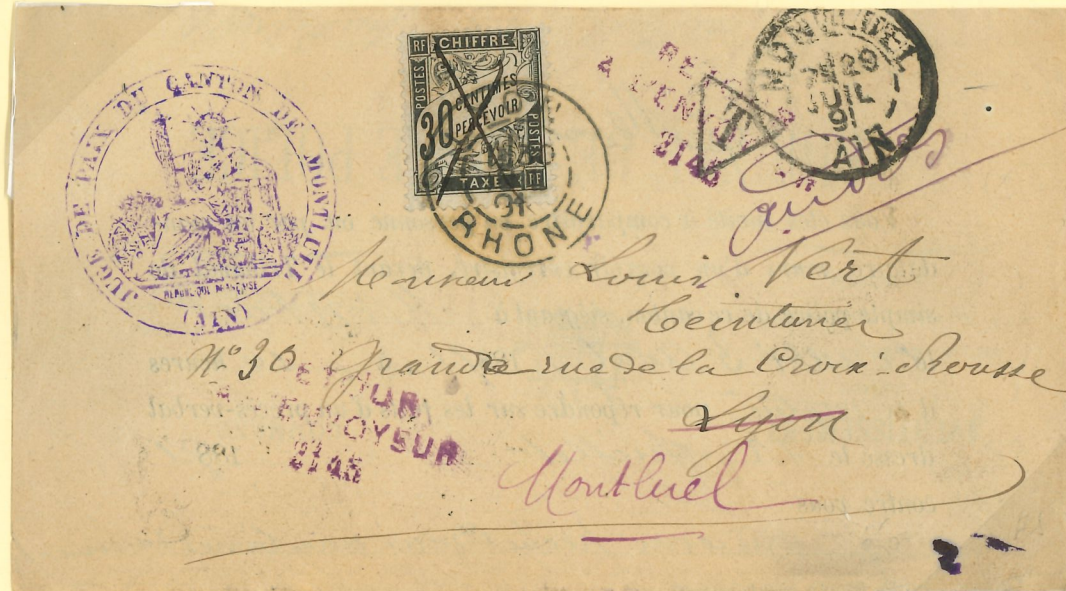 JUGE DE PAIX DU CANTON DE MONTLUEL
RÉPUBLIQUE FRANÇAISE
(AIN)
RF CHIFFRE
POSTES
30 CENTIMES
PERCEVOIR
POSTES
TAXE RF
RHONE
RETOUR
A L'ENVOYEUR
2145
T
MONTLUEL
29
JUIL
91
AIN
Monsieur Louis Vert
Teinturier
N° 30 Grande rue de la Croix-Rousse
Lyon
RETOUR
ENVOYEUR
2145
Montluel